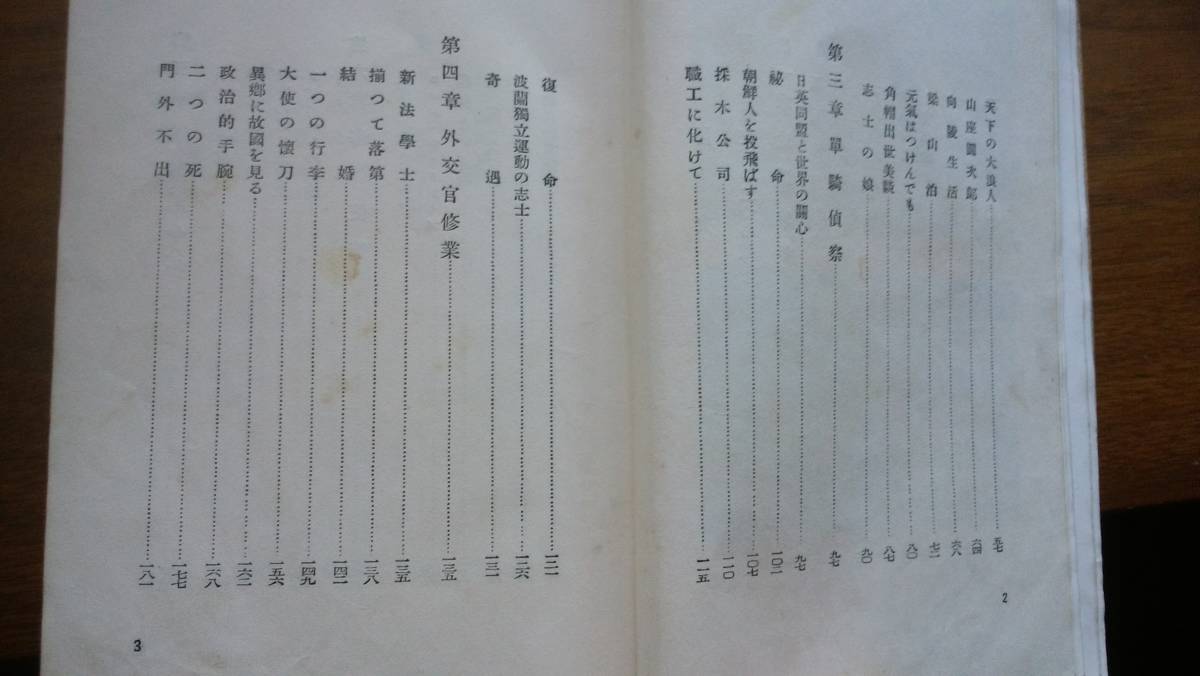 天下の大浪人……五七
山座圓次郎……六四
向陵生活……六八
梁山泊……七二
元氣はつけんでも……八〇
角帽出世美談……八七
志士の娘……九〇
第三章 單騎偵察……九七
日英同盟と世界の關心……九七
祕命……一〇二
朝鮮人を投飛ばす……一〇七
採木公司……一一〇
職工に化けて……一一五
2
復命……一二一
波蘭獨立運動の志士……一二六
奇遇……一三一
第四章 外交官修業……一三五
新法學士……一三五
揃つて落第……一三八
結婚……一四二
一つの行李……一四九
大使の懷刀……一五六
異鄕に故國を見る……一六二
政治的手腕……一六八
二つの死……一七七
門外不出……一八一
3